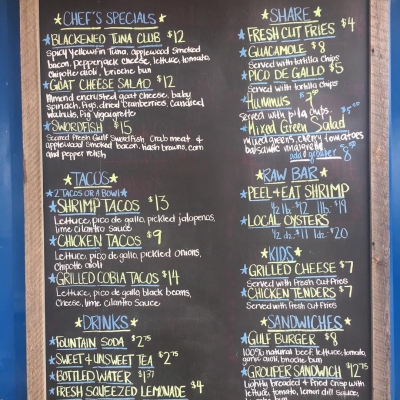 CHEF'S SPECIALS
BLACKENED TUNA CLUB $12
Spicy Yellowfin Tuna, applewood smoked
bacon, pepperjack cheese, lettuce, tomato,
chipotle aioli, brioche bun
GOAT CHEESE SALAD $12
Almond encrusted goat cheese, baby
spinach, figs, dried cranberries, candied
walnuts, Fig Vinaigrette
SWORDFISH $15
Seared Fresh Gulf Swordfish Crab meat &
applewood smoked bacon, hash browns, corn
and pepper relish
TACOS
2 TACOS OR A BOWL
SHRIMP TACOS $13
Lettuce, pico de gallo, pickled jalapenos,
lime cilantro sauce
CHICKEN TACOS $9
Lettuce, pico de gallo, pickled onions,
chipotle aioli
GRILLED COBIA TACOS $14
Lettuce, pico de gallo, black beans,
cheese, lime cilantro sauce
DRINKS
FOUNTAIN SODA $2.75
SWEET & UNSWEET TEA $2.75
BOTTLED WATER $1.37
FRESH SQUEEZED LEMONADE $4
SHARE
FRESH CUT FRIES $4
GUACAMOLE $8
Served with tortilla chips
PICO DE GALLO $5
Served with tortilla chips
Hummus
served with pita chips
Mixed Green Salad
mixed greens, cherry tomatoes
balsamic vinaigrette
add grouper $8
RAW BAR
PEEL & EAT SHRIMP
1/2 lb. $12 1 lb. $19
LOCAL OYSTERS
1/2 dz. $11 1dz. $20
KIDS
GRILLED CHEESE $7
Served with Fresh Cut Fries
CHICKEN TENDERS $7
Served with Fresh Cut Fries
SANDWICHES
GULF BURGER $8
100% natural beef, lettuce, tomato,
garlic aioli, brioche bun
GROUPER SANDWICH $12.75
Lightly breaded & fried crisp with
lettuce, tomato, lemon dill sauce,